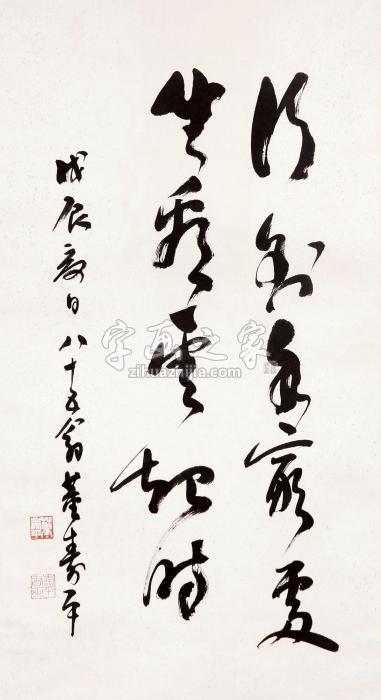 行到水穷处
坐看云起时
戊辰夏日八十五翁董寿平
字画之家
zihuazhijia.com